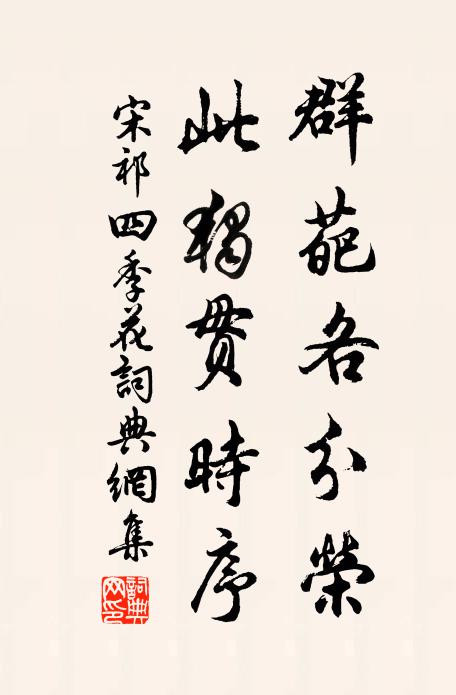 群葩各分榮
此獨貫時序
宋祁四季花詞典網集
詞典網印